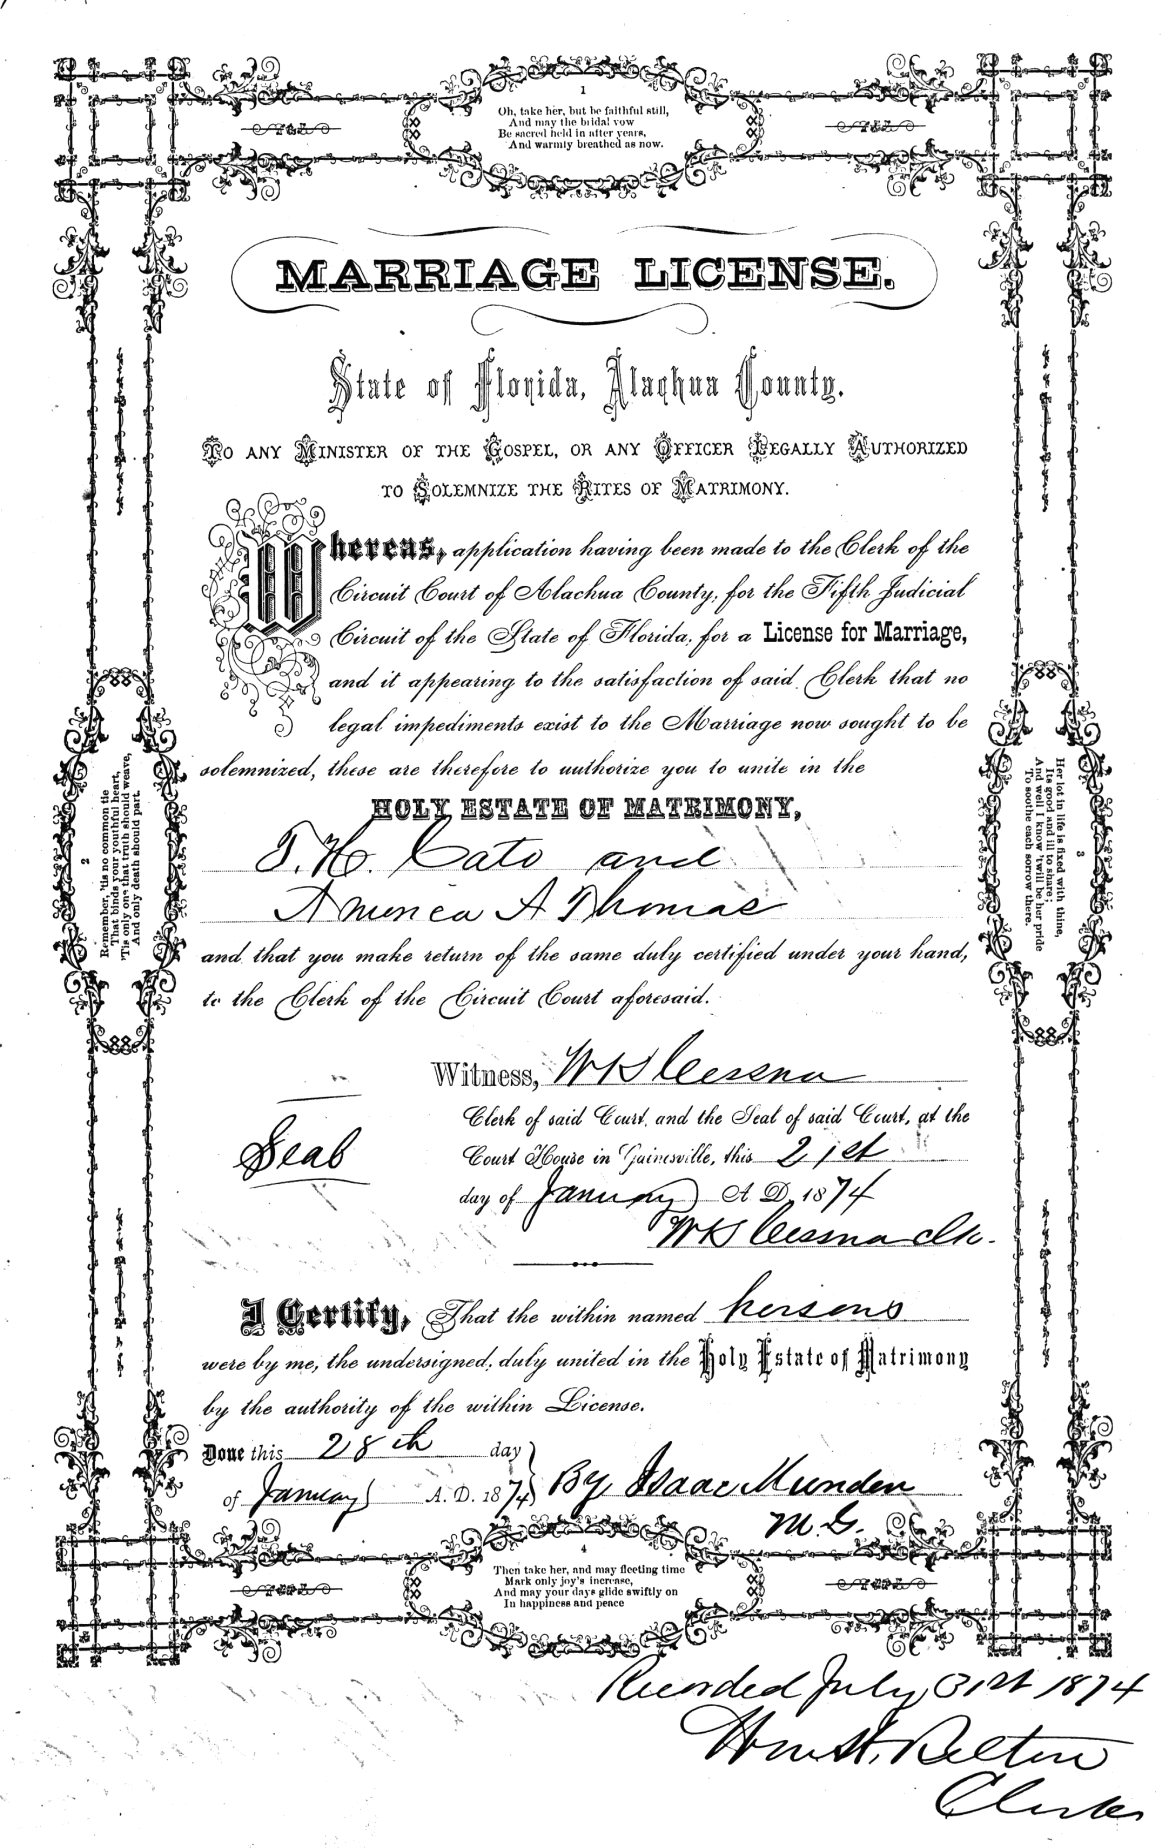 1
Oh, take her, but be faithful still,
And may the bridal vow
Be sacred held in after years,
And warmly breathed as now.
MARRIAGE LICENSE.
State of Florida, Alachua County.
TO ANY MINISTER OF THE GOSPEL, OR ANY OFFICER LEGALLY AUTHORIZED
TO SOLEMNIZE THE RITES OF MATRIMONY.
Whereas, application having been made to the Clerk of the
Circuit Court of Alachua County, for the Fifth Judicial
Circuit of the State of Florida, for a License for Marriage,
and it appearing to the satisfaction of said Clerk that no
legal impediments exist to the Marriage now sought to be
solemnized, these are therefore to authorize you to unite in the
HOLY ESTATE OF MATRIMONY,
T. H. Cato and
America A Thomas
and that you make return of the same duly certified under your hand,
to the Clerk of the Circuit Court aforesaid.
2
Remember, 'tis no common tie
That binds your youthful heart,
'Tis only one that truth should weave,
And only death should part.
3
Her lot in life is fixed with thine,
Its good and ill to share;
And well I know 'twill be her pride
To soothe each sorrow there.
Witness, W K S Cessna
Clerk of said Court, and the Seal of said Court, at the
Court House in Gainesville, this 21st
Seal
day of January A. D. 1874
W K S Cessna Clk.
I Certify, That the within named persons
were by me, the undersigned, duly united in the Holy Estate of Matrimony
by the authority of the within License.
Done this 28th day
of January A. D. 1874 By Isaac Munden
M. G.
4
Then take her, and may fleeting time
Mark only joy's increase,
And may your days glide swiftly on
In happiness and peace
Recorded July 31st 1874
Wm H. Belton
Clerk